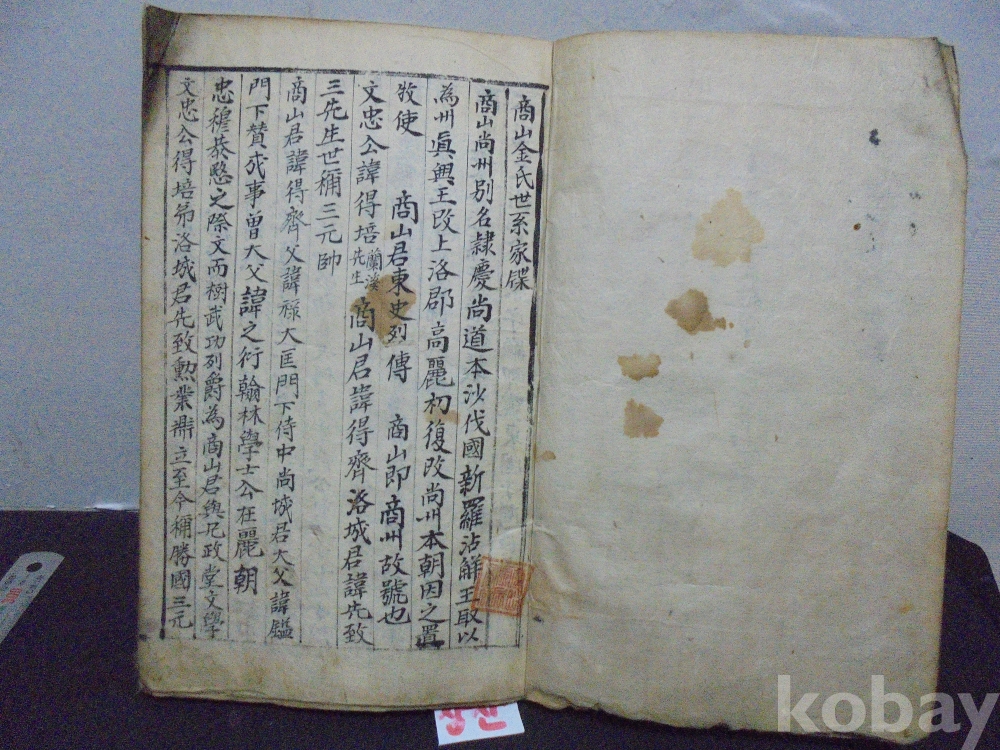 商山金氏世系家牒
商山尚州別名隷慶尚道本沙伐國新羅沾解王取以
為州眞興王改上洛郡高麗初復改尚州本朝因之置
牧使 商山君東史列傳 商山即商州故號也
文忠公諱得培蘭溪先生 商山君諱得齊 洛城君諱先致
三先生世稱三元帥
商山君諱得齊父諱祿大匡門下侍中尚城君大父諱鎰
門下贊成事曽大父諱之衍翰林學士公在麗朝
忠穆恭愍之際文而樹武功列爵為商山君與兄政堂文學
文忠公得培弟洛城君先致勲業鼎立至今稱勝國三元
kobay